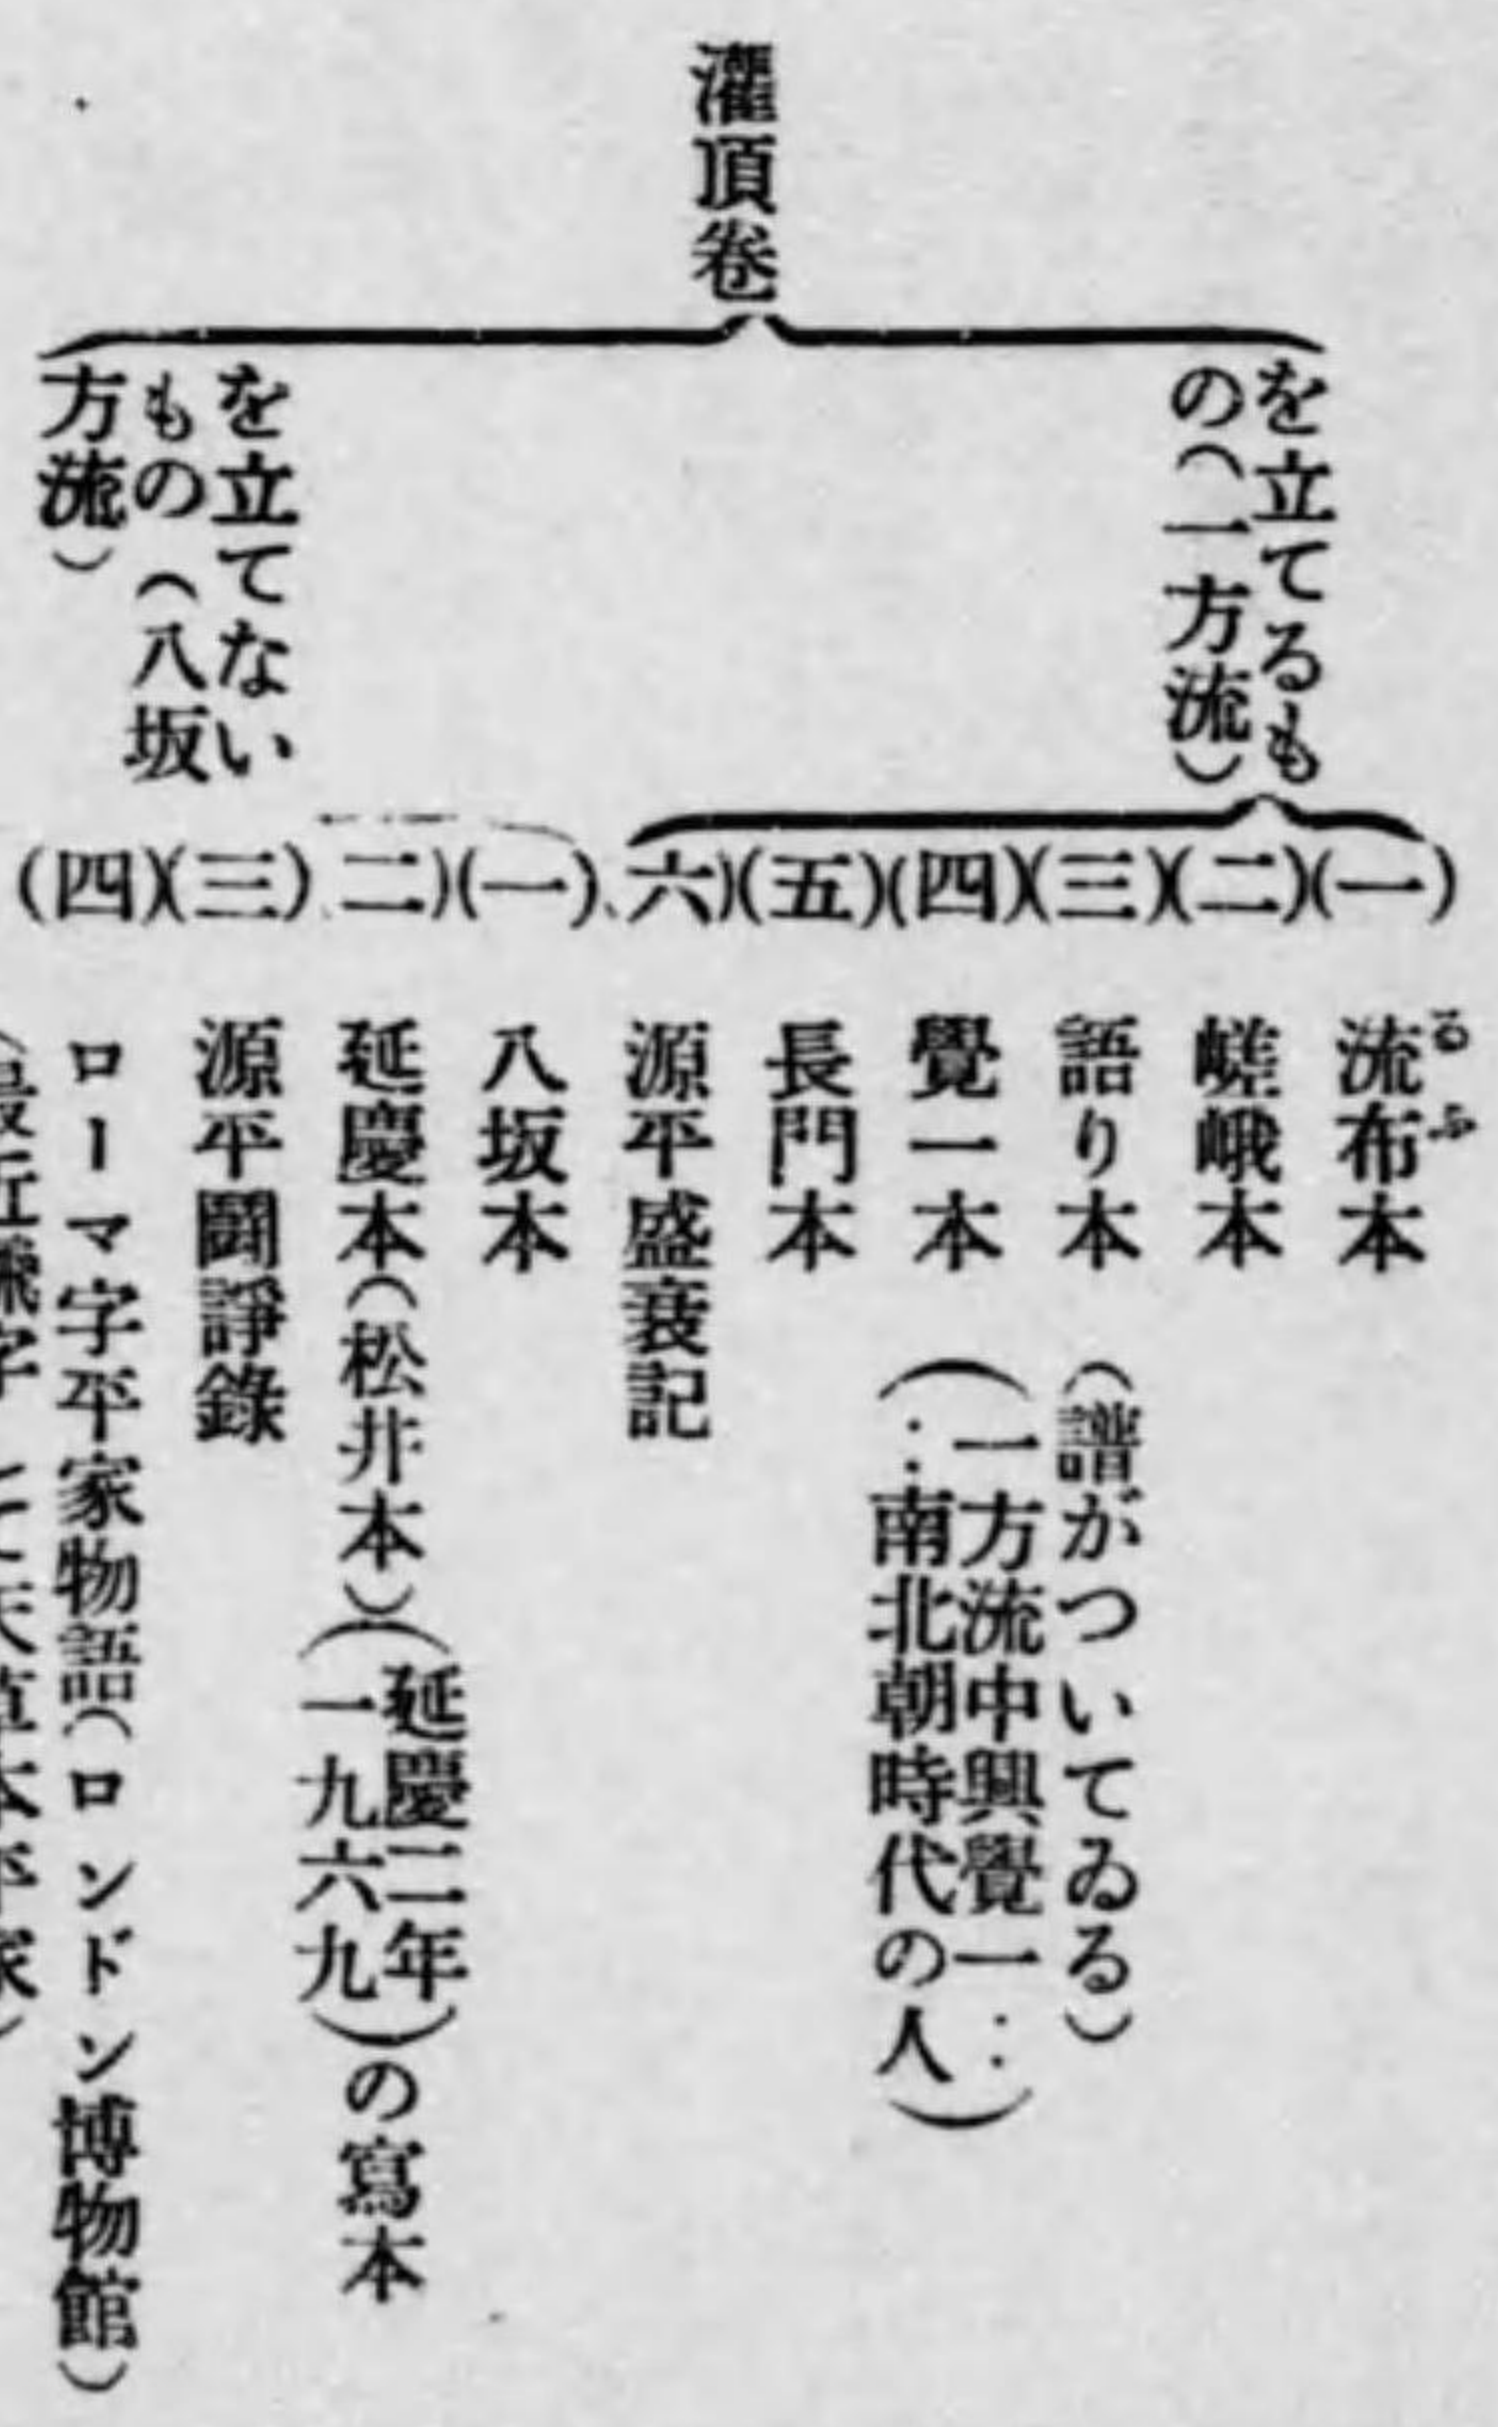 灌頂卷
を立てるも
の(一方流)
(一) 流布本
るふ
(二) 嵯峨本
(三) 語り本 (譜がついてゐる)
(四) 覺一本 (一方流中興覺一‥
‥南北朝時代の人)
(五) 長門本
六) 源平盛衰記
を立てない
もの(八坂
方流)
(一) 八坂本
二) 延慶本(松井本)(延慶二年
一九六九)の寫本
(三) 源平鬪諍錄
(四) ローマ字平家物語(ロンドン博物館)